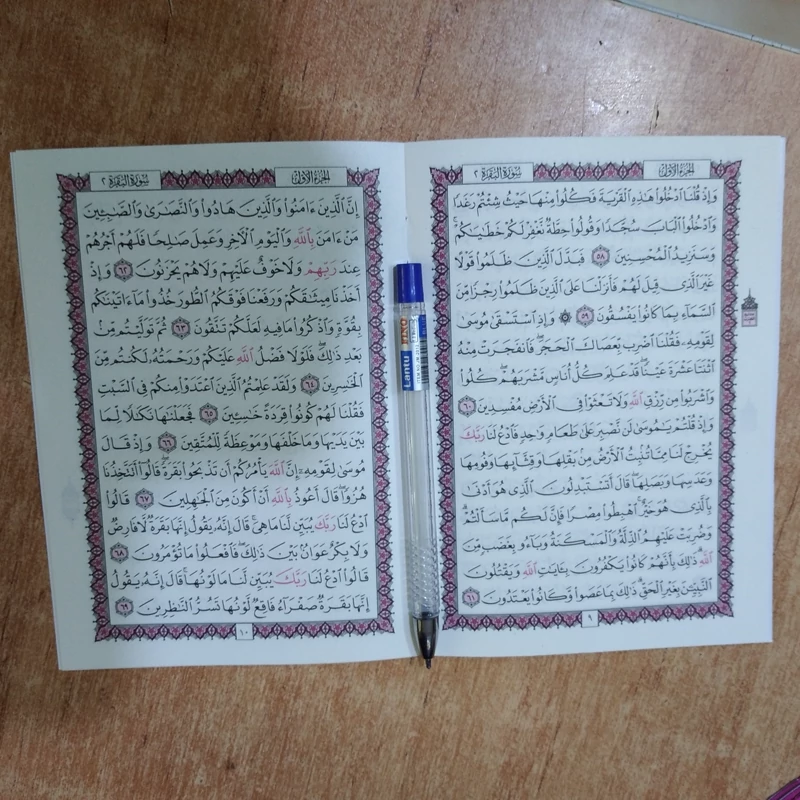 الجزء الأول
سورة البقرة ٢
وَإِذْ قُلْنَا ٱدْخُلُوا۟ هَـٰذِهِ ٱلْقَرْيَةَ فَكُلُوا۟ مِنْهَا حَيْثُ شِئْتُمْ رَغَدًا
وَٱدْخُلُوا۟ ٱلْبَابَ سُجَّدًا وَقُولُوا۟ حِطَّةٌ نَّغْفِرْ لَكُمْ خَطَـٰيَـٰكُمْ ۚ
وَسَنَزِيدُ ٱلْمُحْسِنِينَ ٥٨ فَبَدَّلَ ٱلَّذِينَ ظَلَمُوا۟ قَوْلًا
غَيْرَ ٱلَّذِى قِيلَ لَهُمْ فَأَنزَلْنَا عَلَى ٱلَّذِينَ ظَلَمُوا۟ رِجْزًا مِّنَ
ٱلسَّمَآءِ بِمَا كَانُوا۟ يَفْسُقُونَ ٥٩ ۞ وَإِذِ ٱسْتَسْقَىٰ مُوسَىٰ
لِقَوْمِهِۦ فَقُلْنَا ٱضْرِب بِّعَصَاكَ ٱلْحَجَرَ ۖ فَٱنفَجَرَتْ مِنْهُ
ٱثْنَتَا عَشْرَةَ عَيْنًا ۖ قَدْ عَلِمَ كُلُّ أُنَاسٍ مَّشْرَبَهُمْ ۖ كُلُوا۟
وَٱشْرَبُوا۟ مِن رِّزْقِ ٱللَّهِ وَلَا تَعْثَوْا۟ فِى ٱلْأَرْضِ مُفْسِدِينَ ٦٠
وَإِذْ قُلْتُمْ يَـٰمُوسَىٰ لَن نَّصْبِرَ عَلَىٰ طَعَامٍ وَٰحِدٍ فَٱدْعُ لَنَا رَبَّكَ
يُخْرِجْ لَنَا مِمَّا تُنۢبِتُ ٱلْأَرْضُ مِنۢ بَقْلِهَا وَقِثَّآئِهَا وَفُومِهَا
وَعَدَسِهَا وَبَصَلِهَا ۖ قَالَ أَتَسْتَبْدِلُونَ ٱلَّذِى هُوَ أَدْنَىٰ
بِٱلَّذِى هُوَ خَيْرٌ ۚ ٱهْبِطُوا۟ مِصْرًا فَإِنَّ لَكُم مَّا سَأَلْتُمْ ۗ
وَضُرِبَتْ عَلَيْهِمُ ٱلذِّلَّةُ وَٱلْمَسْكَنَةُ وَبَآءُو بِغَضَبٍ مِّنَ
ٱللَّهِ ۗ ذَٰلِكَ بِأَنَّهُمْ كَانُوا۟ يَكْفُرُونَ بِـَٔايَـٰتِ ٱللَّهِ وَيَقْتُلُونَ
ٱلنَّبِيِّـۧنَ بِغَيْرِ ٱلْحَقِّ ۗ ذَٰلِكَ بِمَا عَصَوا۟ وَّكَانُوا۟ يَعْتَدُونَ ٦١
٩
الجزء الأول
سورة البقرة ٢
إِنَّ ٱلَّذِينَ ءَامَنُوا۟ وَٱلَّذِينَ هَادُوا۟ وَٱلنَّصَـٰرَىٰ وَٱلصَّـٰبِـِٔينَ
مَنْ ءَامَنَ بِٱللَّهِ وَٱلْيَوْمِ ٱلْـَٔاخِرِ وَعَمِلَ صَـٰلِحًا فَلَهُمْ أَجْرُهُمْ
عِندَ رَبِّهِمْ وَلَا خَوْفٌ عَلَيْهِمْ وَلَا هُمْ يَحْزَنُونَ ٦٢ وَإِذْ
أَخَذْنَا مِيثَـٰقَكُمْ وَرَفَعْنَا فَوْقَكُمُ ٱلطُّورَ خُذُوا۟ مَآ ءَاتَيْنَـٰكُم
بِقُوَّةٍ وَٱذْكُرُوا۟ مَا فِيهِ لَعَلَّكُمْ تَتَّقُونَ ٦٣ ثُمَّ تَوَلَّيْتُم مِّنۢ
بَعْدِ ذَٰلِكَ ۖ فَلَوْلَا فَضْلُ ٱللَّهِ عَلَيْكُمْ وَرَحْمَتُهُۥ لَكُنتُم مِّنَ
ٱلْخَـٰسِرِينَ ٦٤ وَلَقَدْ عَلِمْتُمُ ٱلَّذِينَ ٱعْتَدَوْا۟ مِنكُمْ فِى ٱلسَّبْتِ
فَقُلْنَا لَهُمْ كُونُوا۟ قِرَدَةً خَـٰسِـِٔينَ ٦٥ فَجَعَلْنَـٰهَا نَكَـٰلًا لِّمَا
بَيْنَ يَدَيْهَا وَمَا خَلْفَهَا وَمَوْعِظَةً لِّلْمُتَّقِينَ ٦٦ وَإِذْ قَالَ
مُوسَىٰ لِقَوْمِهِۦٓ إِنَّ ٱللَّهَ يَأْمُرُكُمْ أَن تَذْبَحُوا۟ بَقَرَةً ۖ قَالُوٓا۟ أَتَتَّخِذُنَا
هُزُوًا ۖ قَالَ أَعُوذُ بِٱللَّهِ أَنْ أَكُونَ مِنَ ٱلْجَـٰهِلِينَ ٦٧ قَالُوا۟
ٱدْعُ لَنَا رَبَّكَ يُبَيِّن لَّنَا مَا هِىَ ۚ قَالَ إِنَّهُۥ يَقُولُ إِنَّهَا بَقَرَةٌ لَّا فَارِضٌ
وَلَا بِكْرٌ عَوَانٌۢ بَيْنَ ذَٰلِكَ ۖ فَٱفْعَلُوا۟ مَا تُؤْمَرُونَ ٦٨
قَالُوا۟ ٱدْعُ لَنَا رَبَّكَ يُبَيِّن لَّنَا مَا لَوْنُهَا ۚ قَالَ إِنَّهُۥ يَقُولُ
إِنَّهَا بَقَرَةٌ صَفْرَآءُ فَاقِعٌ لَّوْنُهَا تَسُرُّ ٱلنَّـٰظِرِينَ ٦٩
١٠
Lantu